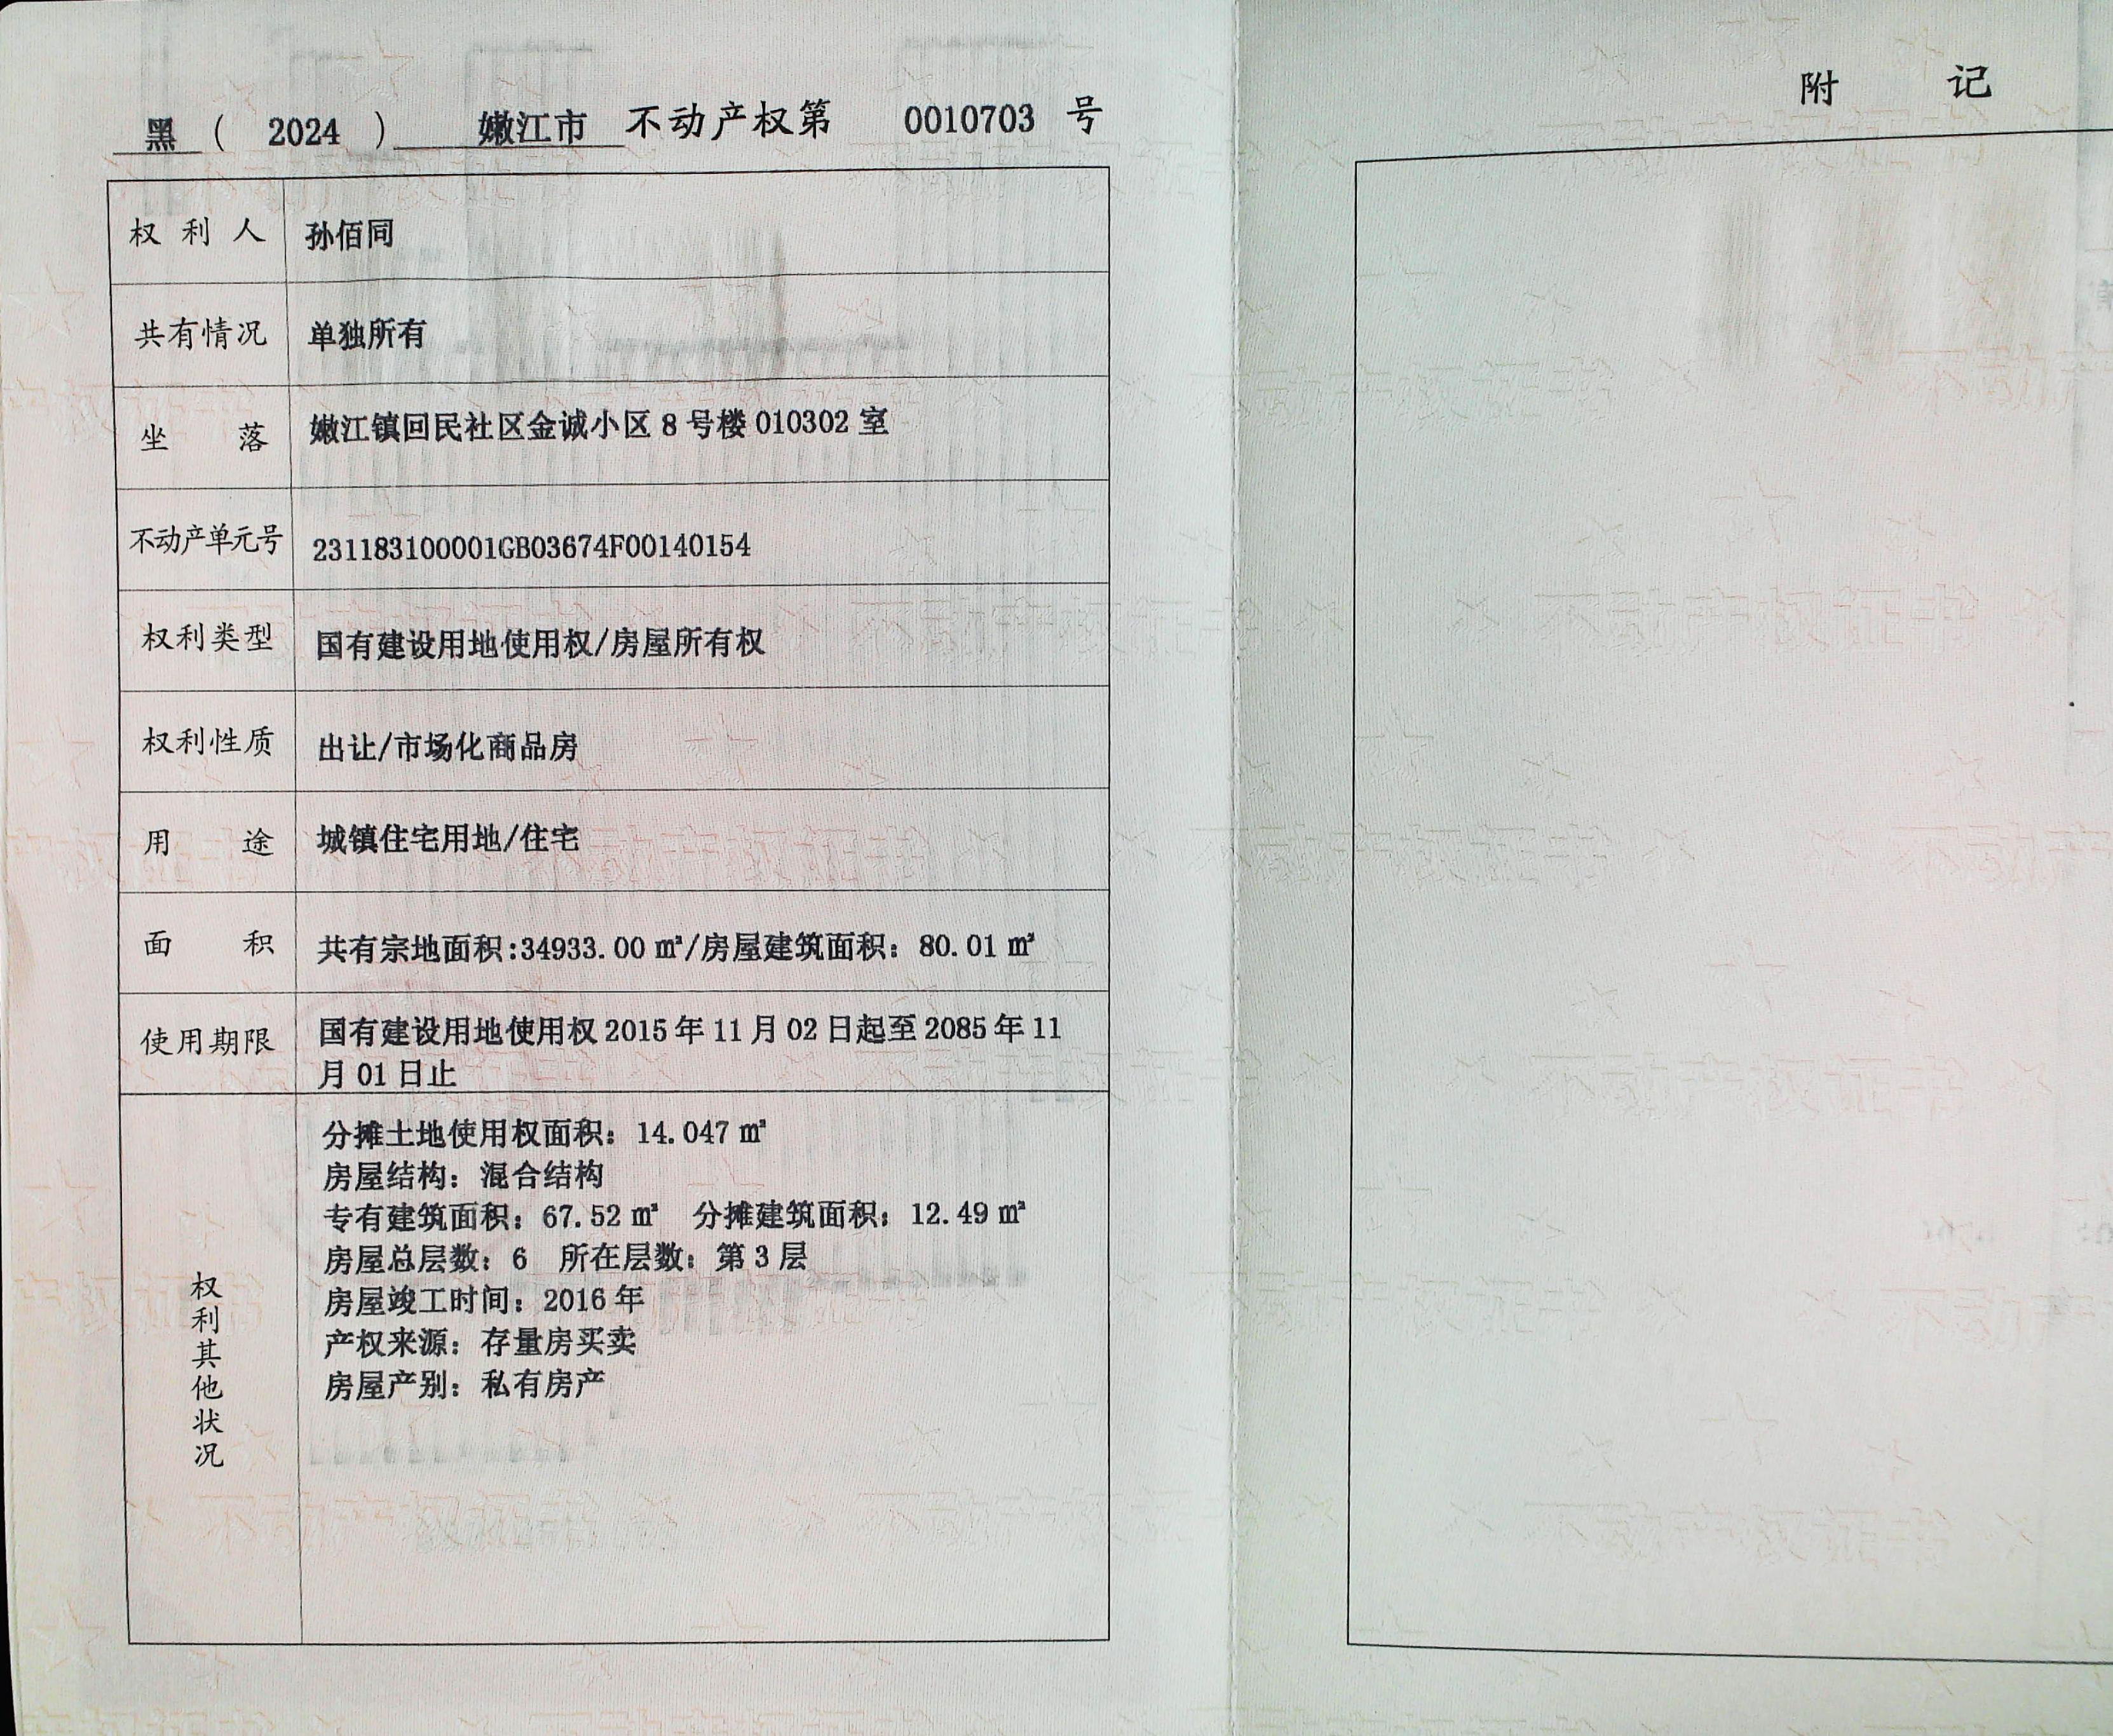 黑 ( 2024 ) 嫩江市 不动产权第 0010703 号
权利人 孙佰同
共有情况 单独所有
坐落 嫩江镇回民社区金诚小区 8 号楼 010302 室
不动产单元号 231183100001GB03674F00140154
权利类型 国有建设用地使用权/房屋所有权
权利性质 出让/市场化商品房
用途 城镇住宅用地/住宅
面积 共有宗地面积:34933.00 ㎡/房屋建筑面积：80.01 ㎡
使用期限 国有建设用地使用权 2015 年 11 月 02 日起至 2085 年 11
月 01 日止
权利其他状况
分摊土地使用权面积：14.047 ㎡
房屋结构：混合结构
专有建筑面积：67.52 ㎡ 分摊建筑面积：12.49 ㎡
房屋总层数：6 所在层数：第 3 层
房屋竣工时间：2016 年
产权来源：存量房买卖
房屋产别：私有房产
附记